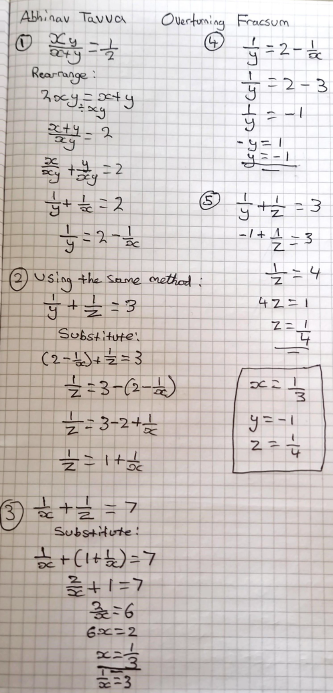 Abhinav Tavva Overturning Fracsum
① xy/x+y = 1/2
Rearrange:
2xy = x+y
÷xy
x+y/xy = 2
x/xy + y/xy = 2
1/y + 1/x = 2
1/y = 2 - 1/x
② Using the same method:
1/y + 1/z = 3
Substitute:
(2 - 1/x) + 1/z = 3
1/z = 3 - (2 - 1/x)
1/z = 3 - 2 + 1/x
1/z = 1 + 1/x
③ 1/x + 1/z = 7
Substitute:
1/x + (1 + 1/x) = 7
2/x + 1 = 7
2/x = 6
6x = 2
x = 1/3
1/x = 3
④ 1/y = 2 - 1/x
1/y = 2 - 3
1/y = -1
-y = 1
y = -1
⑤ 1/y + 1/z = 3
-1 + 1/z = 3
1/z = 4
4z = 1
z = 1/4
x = 1/3
y = -1
z = 1/4